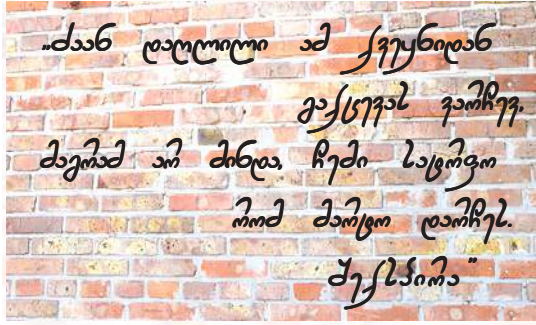 „ძაან დაღლილი ამ ქვეყნიდან
გაქცევას ვარჩევ,
მაგრამ არ მინდა, ჩემი სატრფო
რომ მარტო დარჩეს.
შექსპირა"